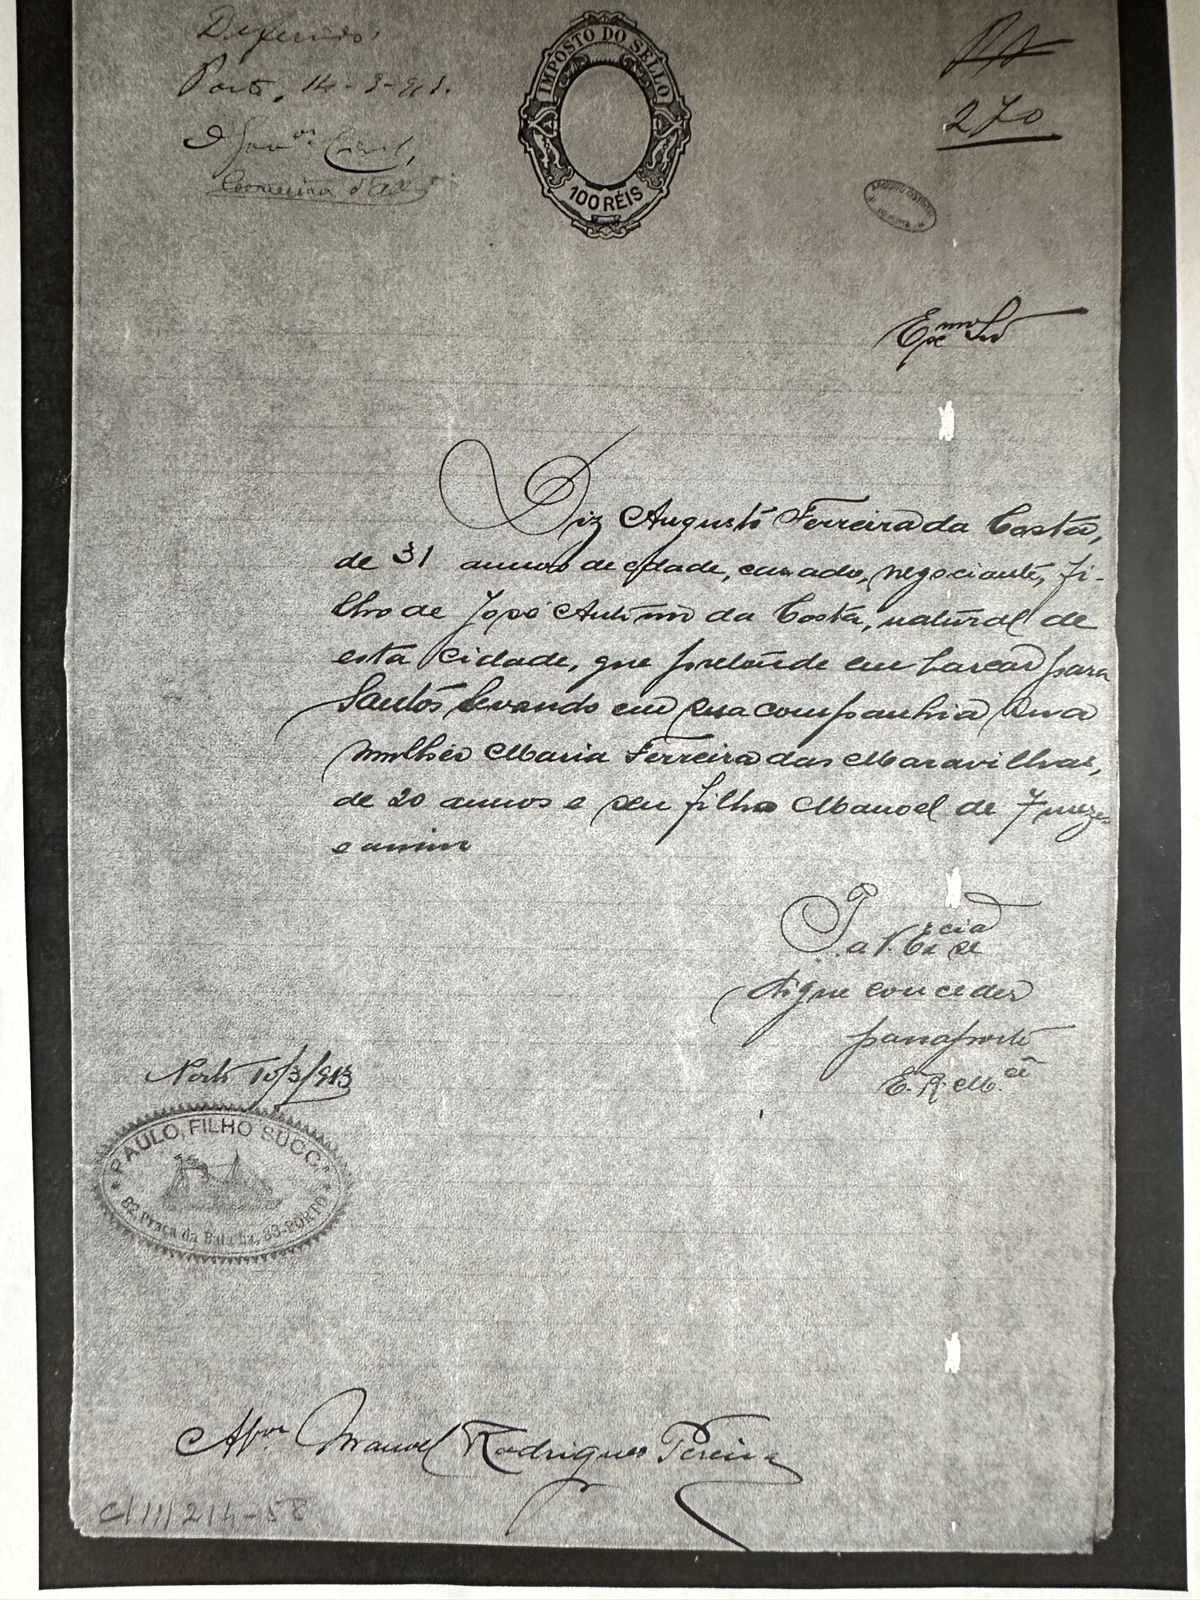 Deferido,
Porto, 14-3-913.
O Gov.or Civil,
IMPOSTO DO SELLO
100 RÉIS
270
Exmo Snr
Diz Augusto Ferreira da Costa,
de 31 annos de edade, casado, negociante, fi-
lho de José Antonio da Costa, natural de
esta Cidade, que pretende embarcar para
Santos levando em sua companhia sua
mulher Maria Ferreira das Maravilhas,
de 20 annos e seu filho Manoel de 7 mezes
e assim
P. a V. Excia se
digne conceder
passaporte
E. R. M.cê
Porto 10/3/913
PAULO, FILHO SUCC.
82, Praça da Batalha, 83-PORTO
Manoel Rodrigues Pereira